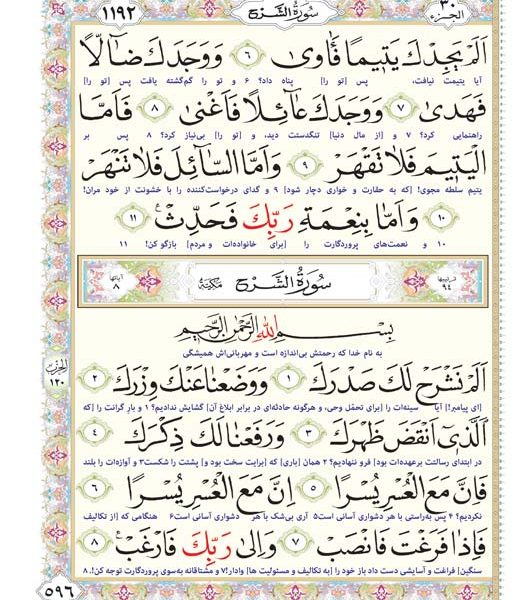 ۱۱۹۲
سُورَةُ الشَّرْح
۳۰
الجزء
اَلَمْ يَجِدْكَ يَتيمًا فَـاٰوٰى ﴿۶﴾ وَوَجَدَكَ ضَآلًّا
آیا یتیمت نیافت، پس [تو را] پناه داد؟ ۶ و تو را گم‌گشته یافت پس [تو را]
فَهَدٰى ﴿۷﴾ وَوَجَدَكَ عَآئِلًا فَاَغْنٰى ﴿۸﴾ فَاَمَّا
راهنمایی کرد؟ ۷ و [از مال دنیا] تنگدستت دید، و [تو را] بی‌نیاز کرد؟ ۸ پس بر
الْيَتيمَ فَلَا تَقْهَرْ ﴿۹﴾ وَاَمَّا السَّآئِلَ فَلَا تَنْهَرْ
یتیم سلطه مجوی! [که به حقارت و خواری دچار شود] ۹ و گدای درخواست‌کننده را با خشونت از خود مران!
﴿۱۰﴾ وَاَمَّا بِنِعْمَةِ رَبِّكَ فَحَدِّثْ ﴿۱۱﴾ ع
۱۰ و نعمت‌های پروردگارت را [برای خانواده‌ات و مردم] بازگو کن! ۱۱
ترتیبها
۹۴
سُورَةُ الشَّرْح
مَكِّيَّة
آیاتها
۸
بِسْمِ اللّٰهِ الرَّحْمٰنِ الرَّحيمِ
به نام خدا که رحمتش بی‌اندازه است و مهربانی‌اش همیشگی
اَلَمْ نَشْرَحْ لَكَ صَدْرَكَ ﴿۱﴾ وَوَضَعْنَا عَنْكَ وِزْرَكَ ﴿۲﴾
[ای پیامبر!] آیا سینه‌ات را [برای تحمّل وحی، و هرگونه حادثه‌ای در برابر ابلاغ آن] گشایش ندادیم؟ ۱ و بار گرانت را [که
اَلَّذى اَنْقَضَ ظَهْرَكَ ﴿۳﴾ وَرَفَعْنَا لَكَ ذِكْرَكَ ﴿۴﴾
در ابتدای رسالتت برعهده‌ات بود] فرو ننهادیم؟ ۲ همان [باری] که [برایت سخت بود و] پشتت را شکست؟ ۳ و آوازه‌ات را بلند
فَاِنَّ مَعَ الْعُسْرِ يُسْرًا ﴿۵﴾ اِنَّ مَعَ الْعُسْرِ يُسْرًا ﴿۶﴾
نکردیم؟ ۴ پس به‌راستی با هر دشواری آسانی است ۵ آری بی‌شک با هر دشواری آسانی است ۶ هنگامی که [از تکالیف
فَاِذَا فَرَغْتَ فَانْصَبْ ﴿۷﴾ وَاِلٰى رَبِّكَ فَارْغَبْ ﴿۸﴾ ع
سنگین] فراغت و آسایشی دست داد باز خود را [به تکالیف و مسئولیت ها] وادار! ۷ و مشتاقانه به‌سوی پروردگارت توجه کن!. ۸
الحزب
۱۲۰
۵۹۶